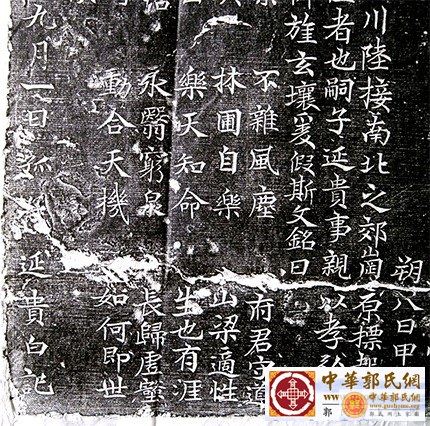 朔八日甲
川陸接南北之郊崗原摽
者也嗣子延貴事親以孝
旌玄壤爰假斯文銘曰
不雜風塵 府君守道
林圃自樂 山梁適性
樂天知命 生也有涯
永翳窮泉 長歸虛壑
動合天機 如何即世
九月一日孤 延貴白記
中華郭氏網
ww
郭